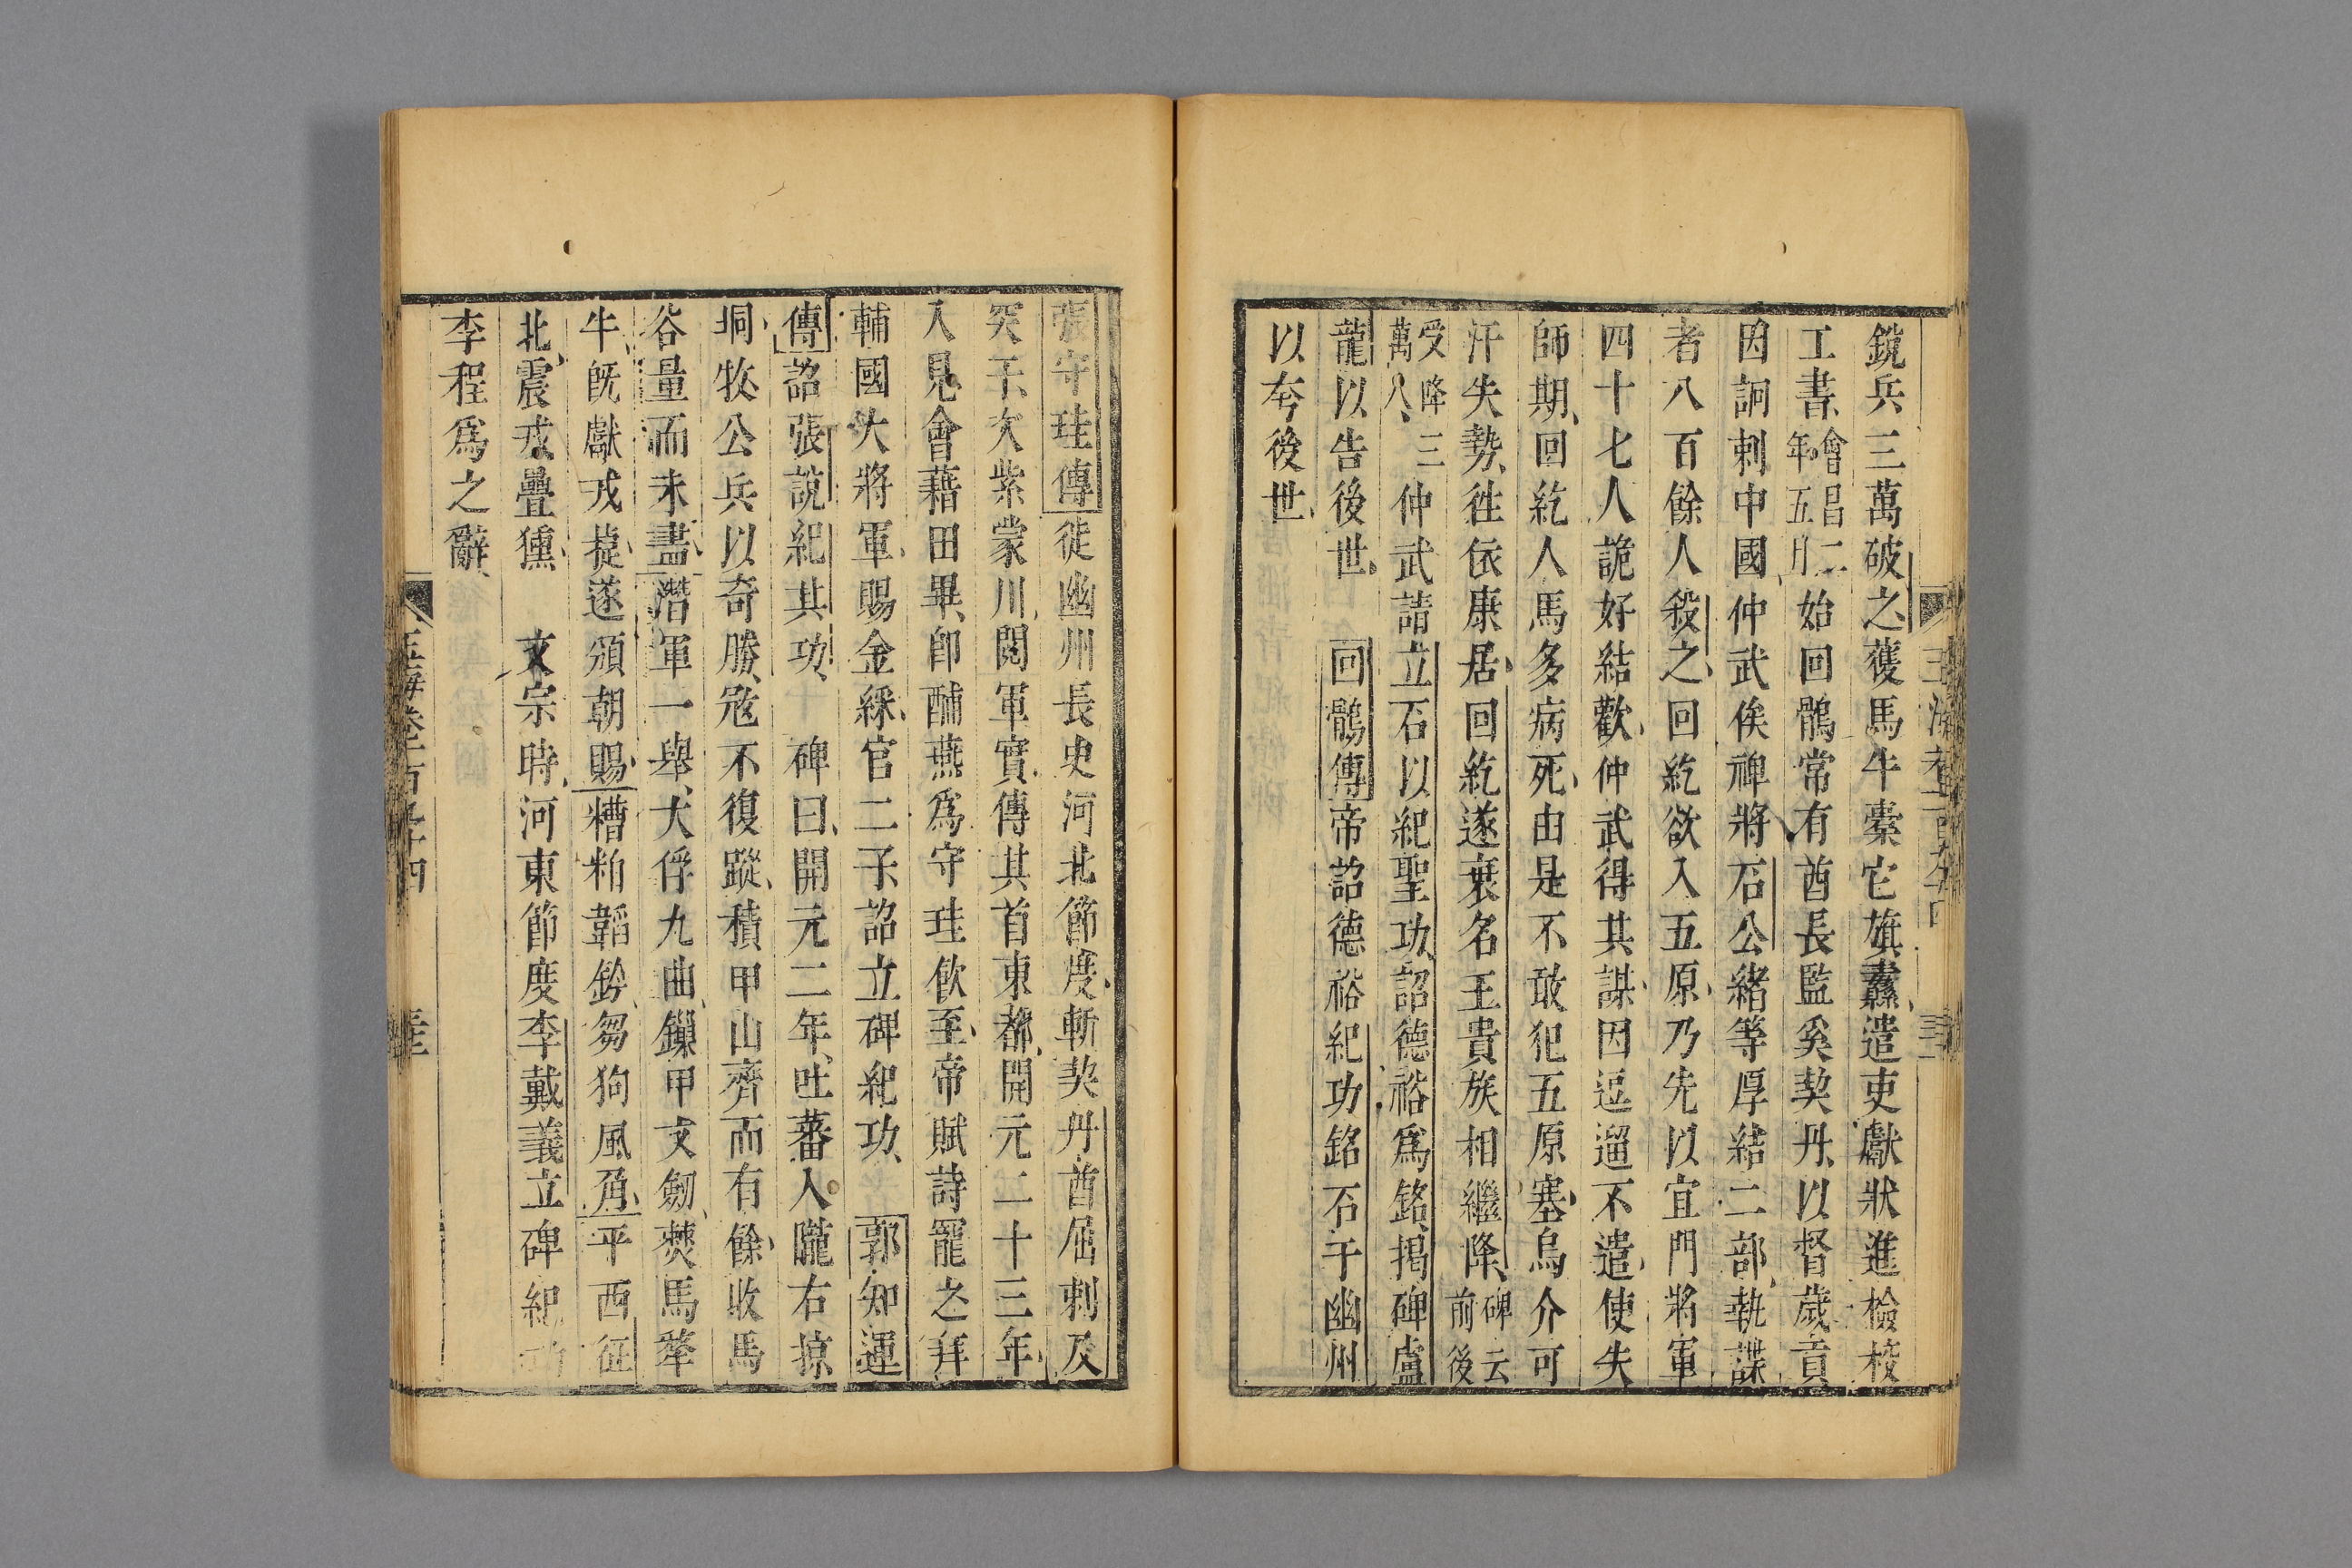 銳兵三萬破之獲馬牛橐它旗纛遣吏獻狀進檢校
工書會昌二年五月始回鶻常有酋長監奚契丹以督歲貢
因詗刺中國仲武俟裨將石公緒等厚結二部執諜
者八百餘人殺之回紇欲入五原乃先以宜門將軍
四十七人詭好結歡仲武得其謀因逗遛不遣使失
師期回紇人馬多病死由是不敢犯五原塞烏介可
汗失勢徃依康居回紇遂衰名王貴族相繼降碑云前後
受降三萬人仲武請立石以紀聖功詔德裕爲銘揭碑盧
龍以告後世回鶻傳帝詔德裕紀功銘石于幽州
以夸後世
張守珪傳徙幽州長史河北節度斬契丹酋屈刺及
突于次紫蒙川閱軍實傳其首東都開元二十三年
入見會藉田畢卽酺燕爲守珪飲至帝賦詩寵之拜
輔國大將軍賜金綵官二子詔立碑紀功郭知運
傳詔張說紀其功碑曰開元二年吐蕃入隴右掠
坰牧公兵以奇勝寇不復蹤積甲山齊而有餘收馬
谷量而未盡潛軍一舉大俘九曲鏁甲文劒䮫馬犛
牛旣獻戎捷遂頒朝賜糟粕韜鈐芻狗風角平西征
北震戎疊獯文宗時河東節度李戴義立碑紀功
李程爲之辭
玉海卷一百九十四